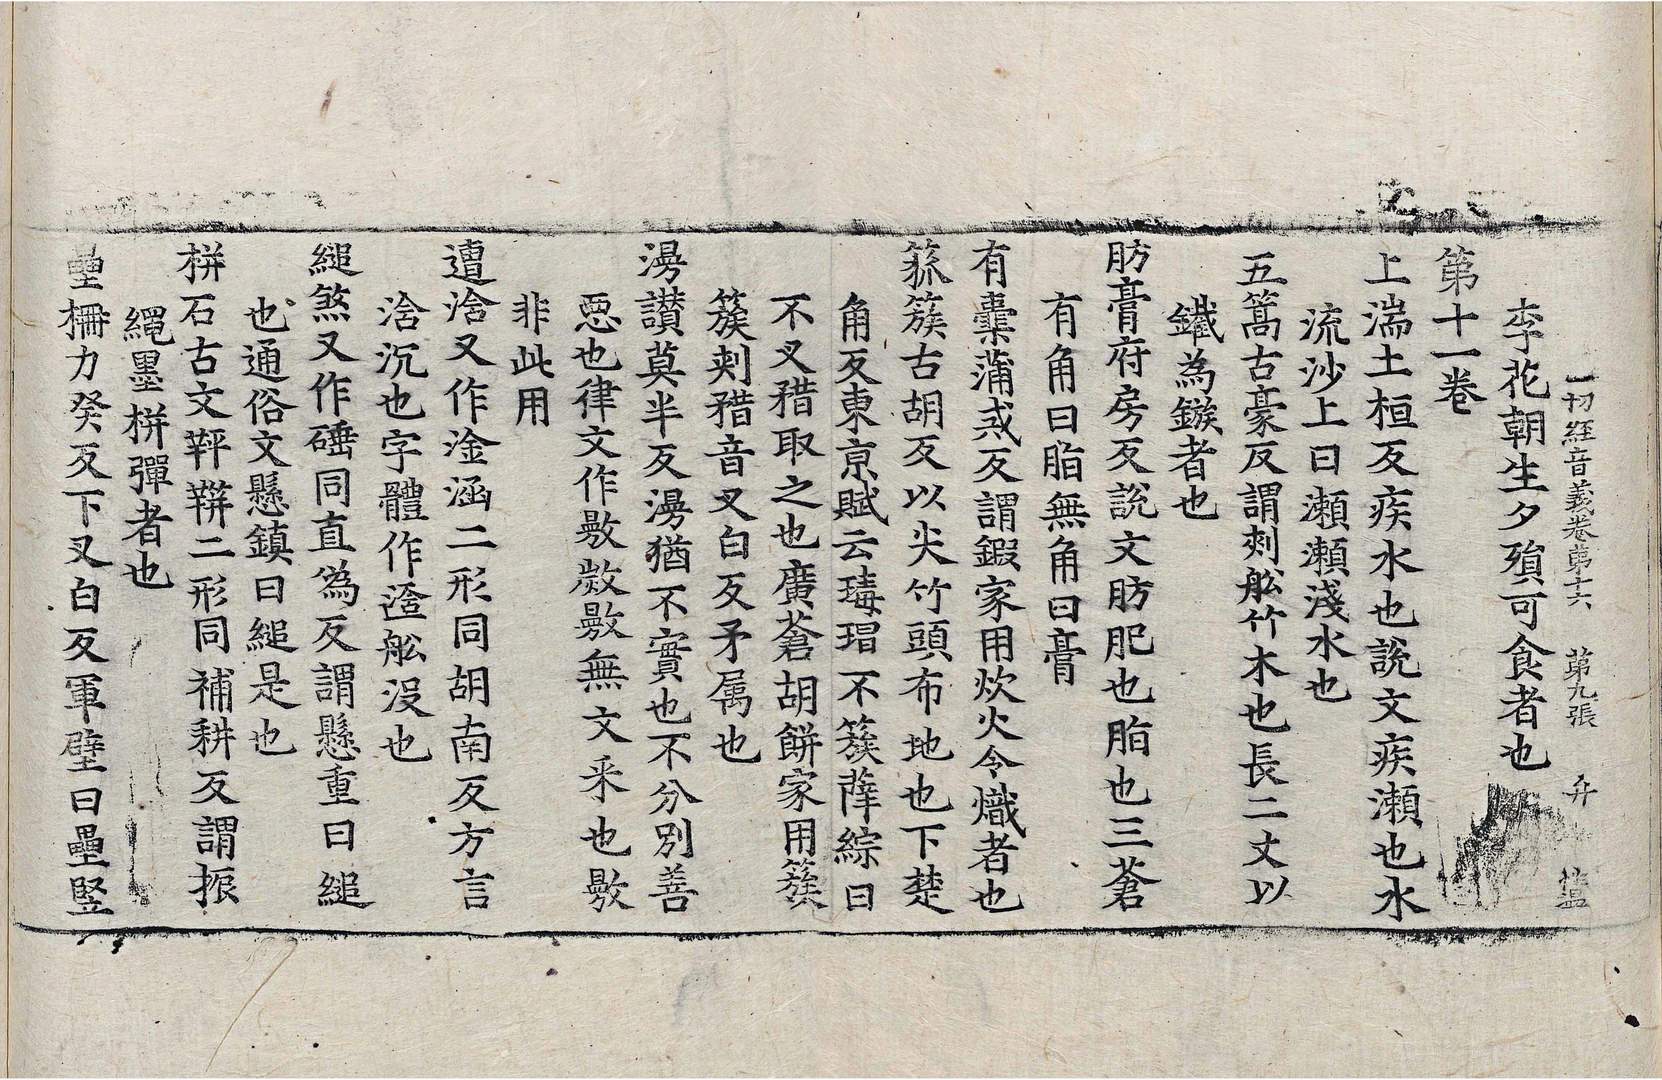 一切經音義卷第十六 第九張 弁
李花朝生夕殞可食者也
第十一卷
上湍土桓反疾水也說文疾瀨也水
流沙上曰瀨瀨淺水也
五篙古豪反謂刺舩竹木也長二丈以
鐵為鏃者也
肪膏府房反說文肪肥也脂也三蒼
有角曰脂無角曰膏
有橐蒲戒反謂鍛家用炊火令熾者也
箛簇古胡反以尖竹頭布地也下楚
角反東京賦云瑇瑁不簇薛綜曰
不叉矠取之也廣蒼胡餅家用簇
簇刺矠音叉白反矛属也
漫讃莫半反漫猶不實也不分別善
惡也律文作敭敳敭無文釆也敭
非此用
邅浛又作淦涵二形同胡南反方言
浛沉也字體作澏舩没也
縋煞又作硾同直偽反謂懸重曰縋
也通俗文懸鎮曰縋是也
栟石古文軯䡶二形同補耕反謂振
繩墨栟彈者也
壘柵力癸反下叉白反軍壁曰壘竪